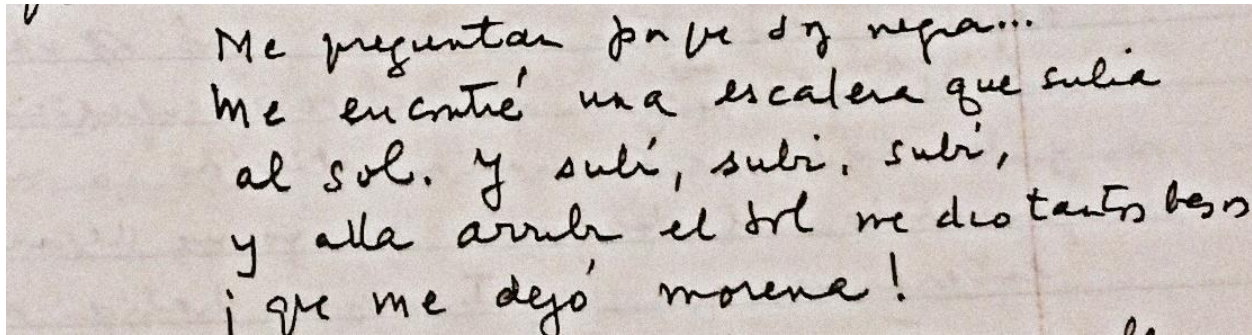 Me preguntan por que soy negra...
Me encontré una escalera que subia
al sol. Y subí, subí, subí,
y alla arriba el sol me dio tantos besos
¡que me dejó morena!